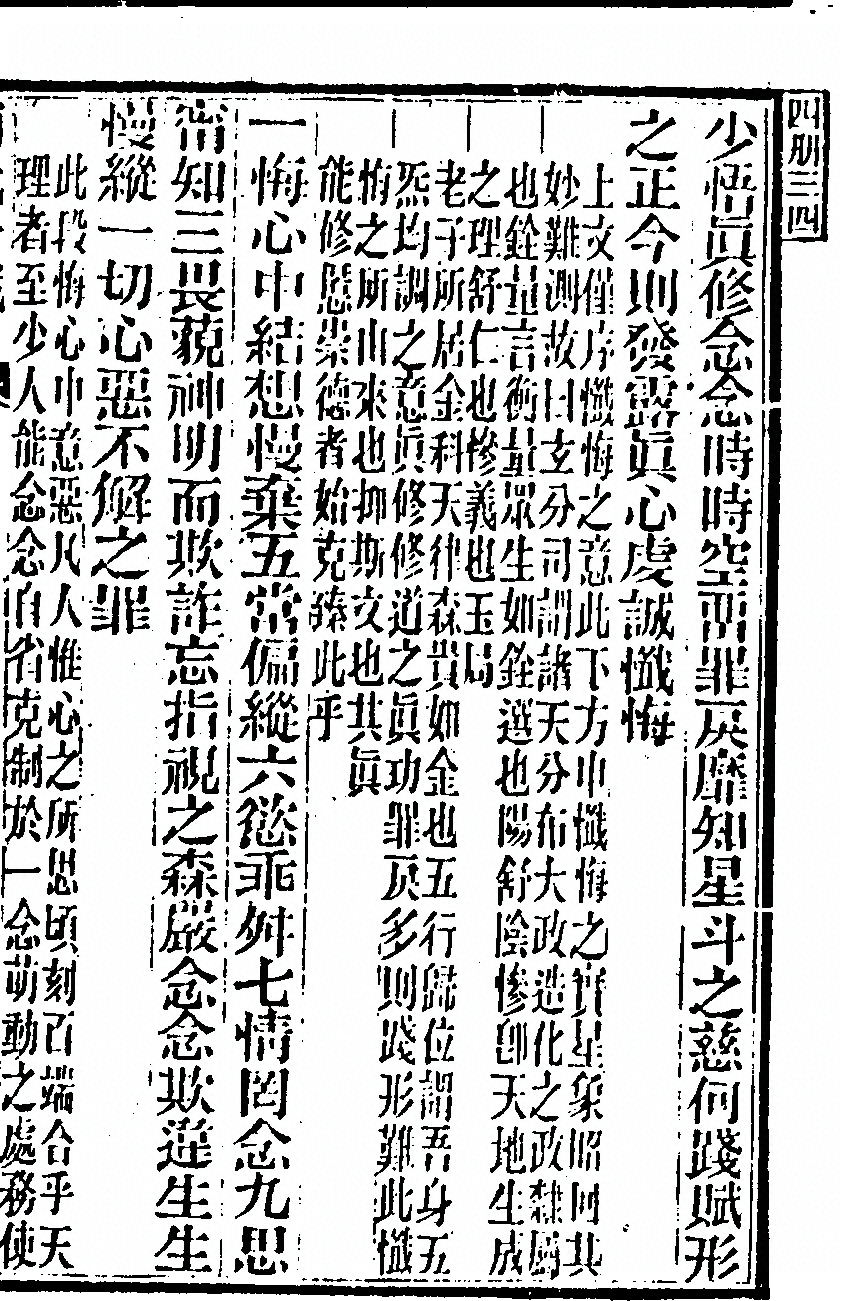 四册三四
少悟眞修念念時時空啻罪戾靡知星斗之慈何踐賦形
之正今則發露眞心虔誠懺悔
上文僅序懺悔之意此下方申懺悔之實星象昭回其
妙難測故曰玄分司謂諸天分布大政造化之政隸屬
也銓量言衡量眾生如銓選也陽舒陰慘卽天地生成
之理舒仁也慘義也玉局
老子所居金科天律森貴如金也五行歸位謂吾身五
炁均調之意眞修修道之眞功罪戾多則踐形難此懺
悔之所由來也抑斯文也其眞
能修慝崇德者始克臻此乎
一悔心中結想慢棄五常偏縱六慾乖舛七情罔念九思
甯知三畏藐神明而欺詐忘指視之森嚴念念欺違生生
慢縱一切心惡不解之罪
此段悔心中意惡凡人惟心之所思頃刻百端合乎天
理者至少人能念念自省克制於一念萌動之處務使